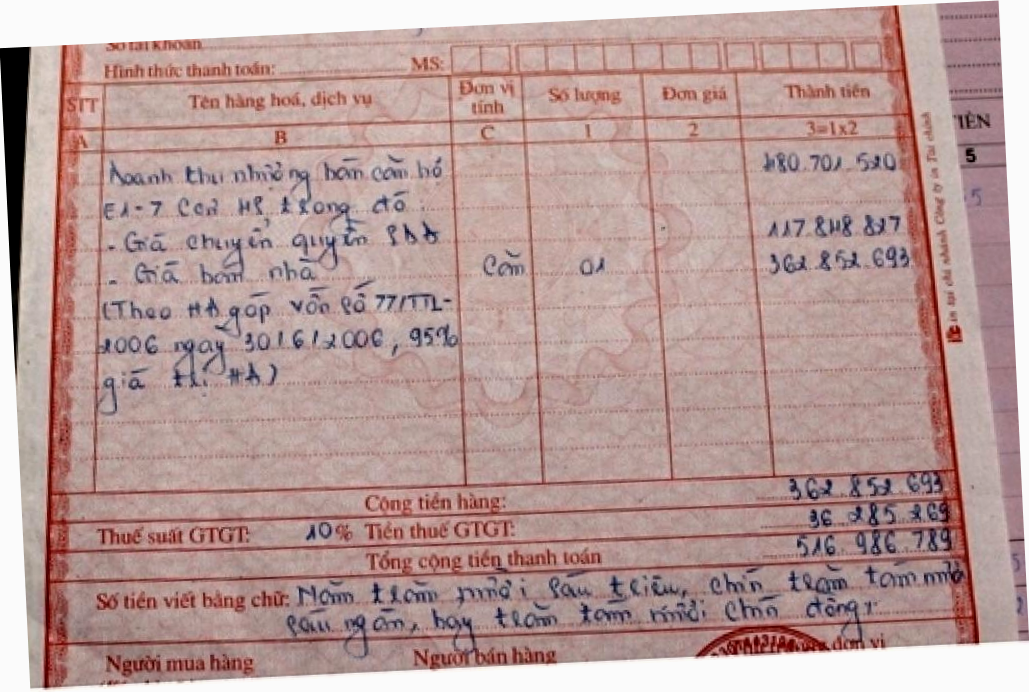 Số tài khoản
Hình thức thanh toán: MS:
STT Tên hàng hoá, dịch vụ Đơn vị tính Số lượng Đơn giá Thành tiền
A B C 1 2 3=1x2
Doanh thu nhượng bán căn hộ 480.701.520
E1-7 CC2 trong đó:
- Giá chuyển quyền SDĐ 117.848.827
- Giá bán nhà Căn 01 362.852.693
(Theo HĐ góp vốn số 77/TTL-
2006 ngày 30/6/2006, 95%
giá trị HĐ)
Cộng tiền hàng: 362.852.693
Thuế suất GTGT: 10% Tiền thuế GTGT: 36.285.269
Tổng cộng tiền thanh toán 516.986.789
Số tiền viết bằng chữ: Năm trăm mười sáu triệu, chín trăm tám mươi
sáu ngàn, bảy trăm tám mươi chín đồng
Người mua hàng Người bán hàng đơn vị
in tại chi nhánh Công ty in Tài chính
TIỀN
5